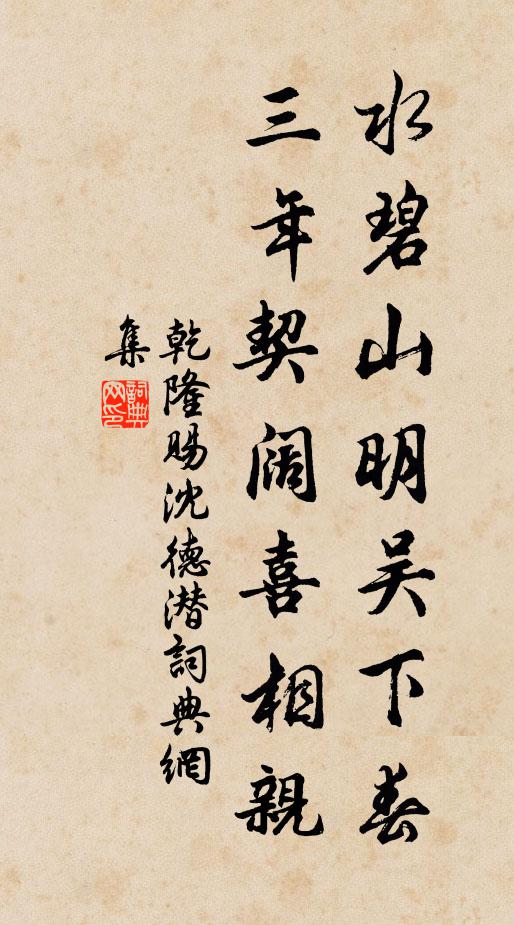 水碧山明吴下春
三年契阔喜相親
乾隆賜沈德潜詞典網
集
詞典网印